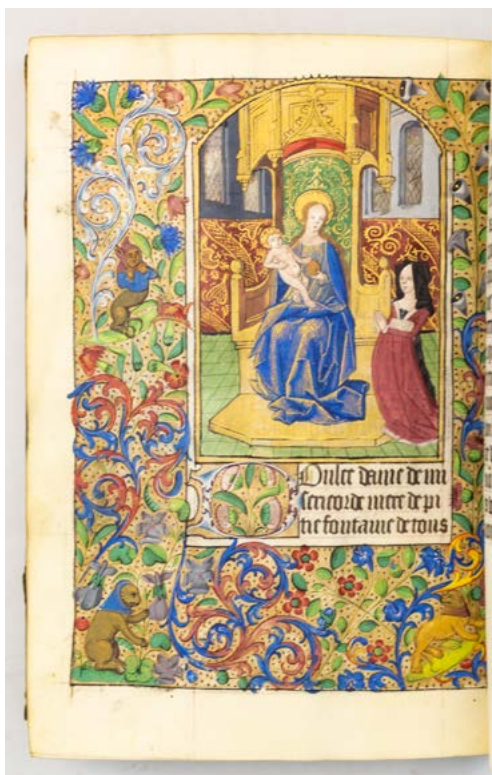 Doulce dame de mi
sericorde mere de pi
tie fontaine de tous